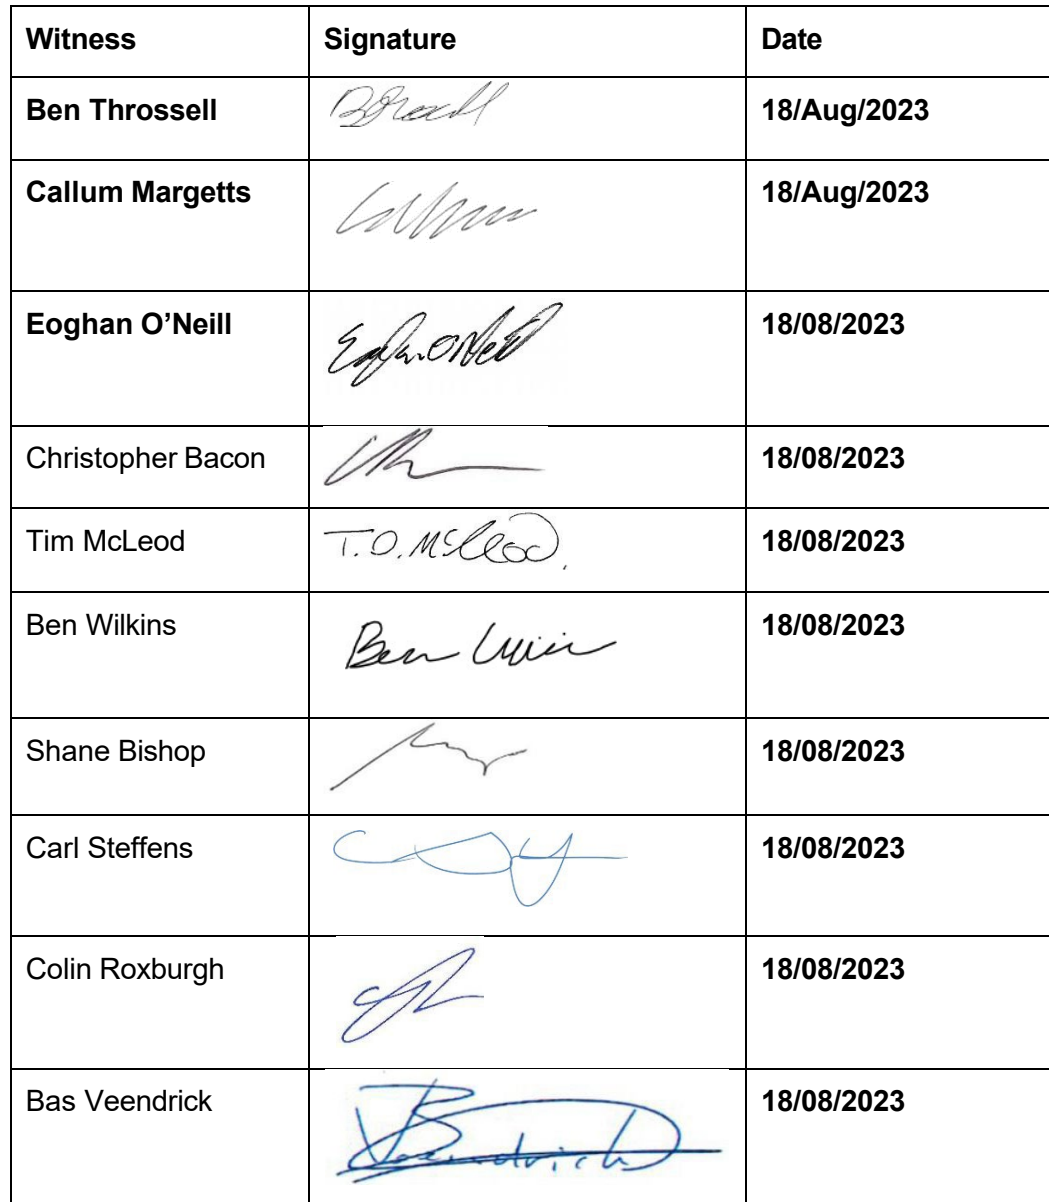 Witness Signature Date
Ben Throssell 18/Aug/2023
Callum Margetts 18/Aug/2023
Eoghan O’Neill 18/08/2023
Christopher Bacon 18/08/2023
Tim McLeod T.O. McLeod. 18/08/2023
Ben Wilkins Ben 18/08/2023
Shane Bishop 18/08/2023
Carl Steffens 18/08/2023
Colin Roxburgh 18/08/2023
Bas Veendrick 18/08/2023